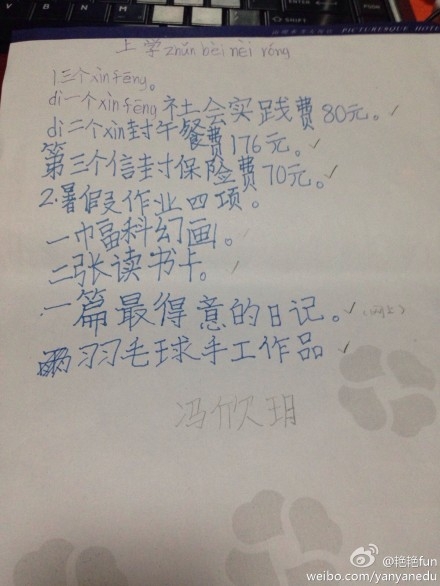 PICTURESQUE HOTEL
上学zhǔn bèi nèi róng
1三个xìn fēng。
dì一个xìn fēng社会实践费80元。✓
dì二个xìn封午餐费176元。✓
第三个信封保险费70元。✓
2.暑假作业四项。
一巾畐科幻画。✓
二张读书卡。✓
一篇最得意的日记。✓
羽毛球手工作品 ✓
冯欣玥
@艳艳fun
weibo.com/yanyanedu